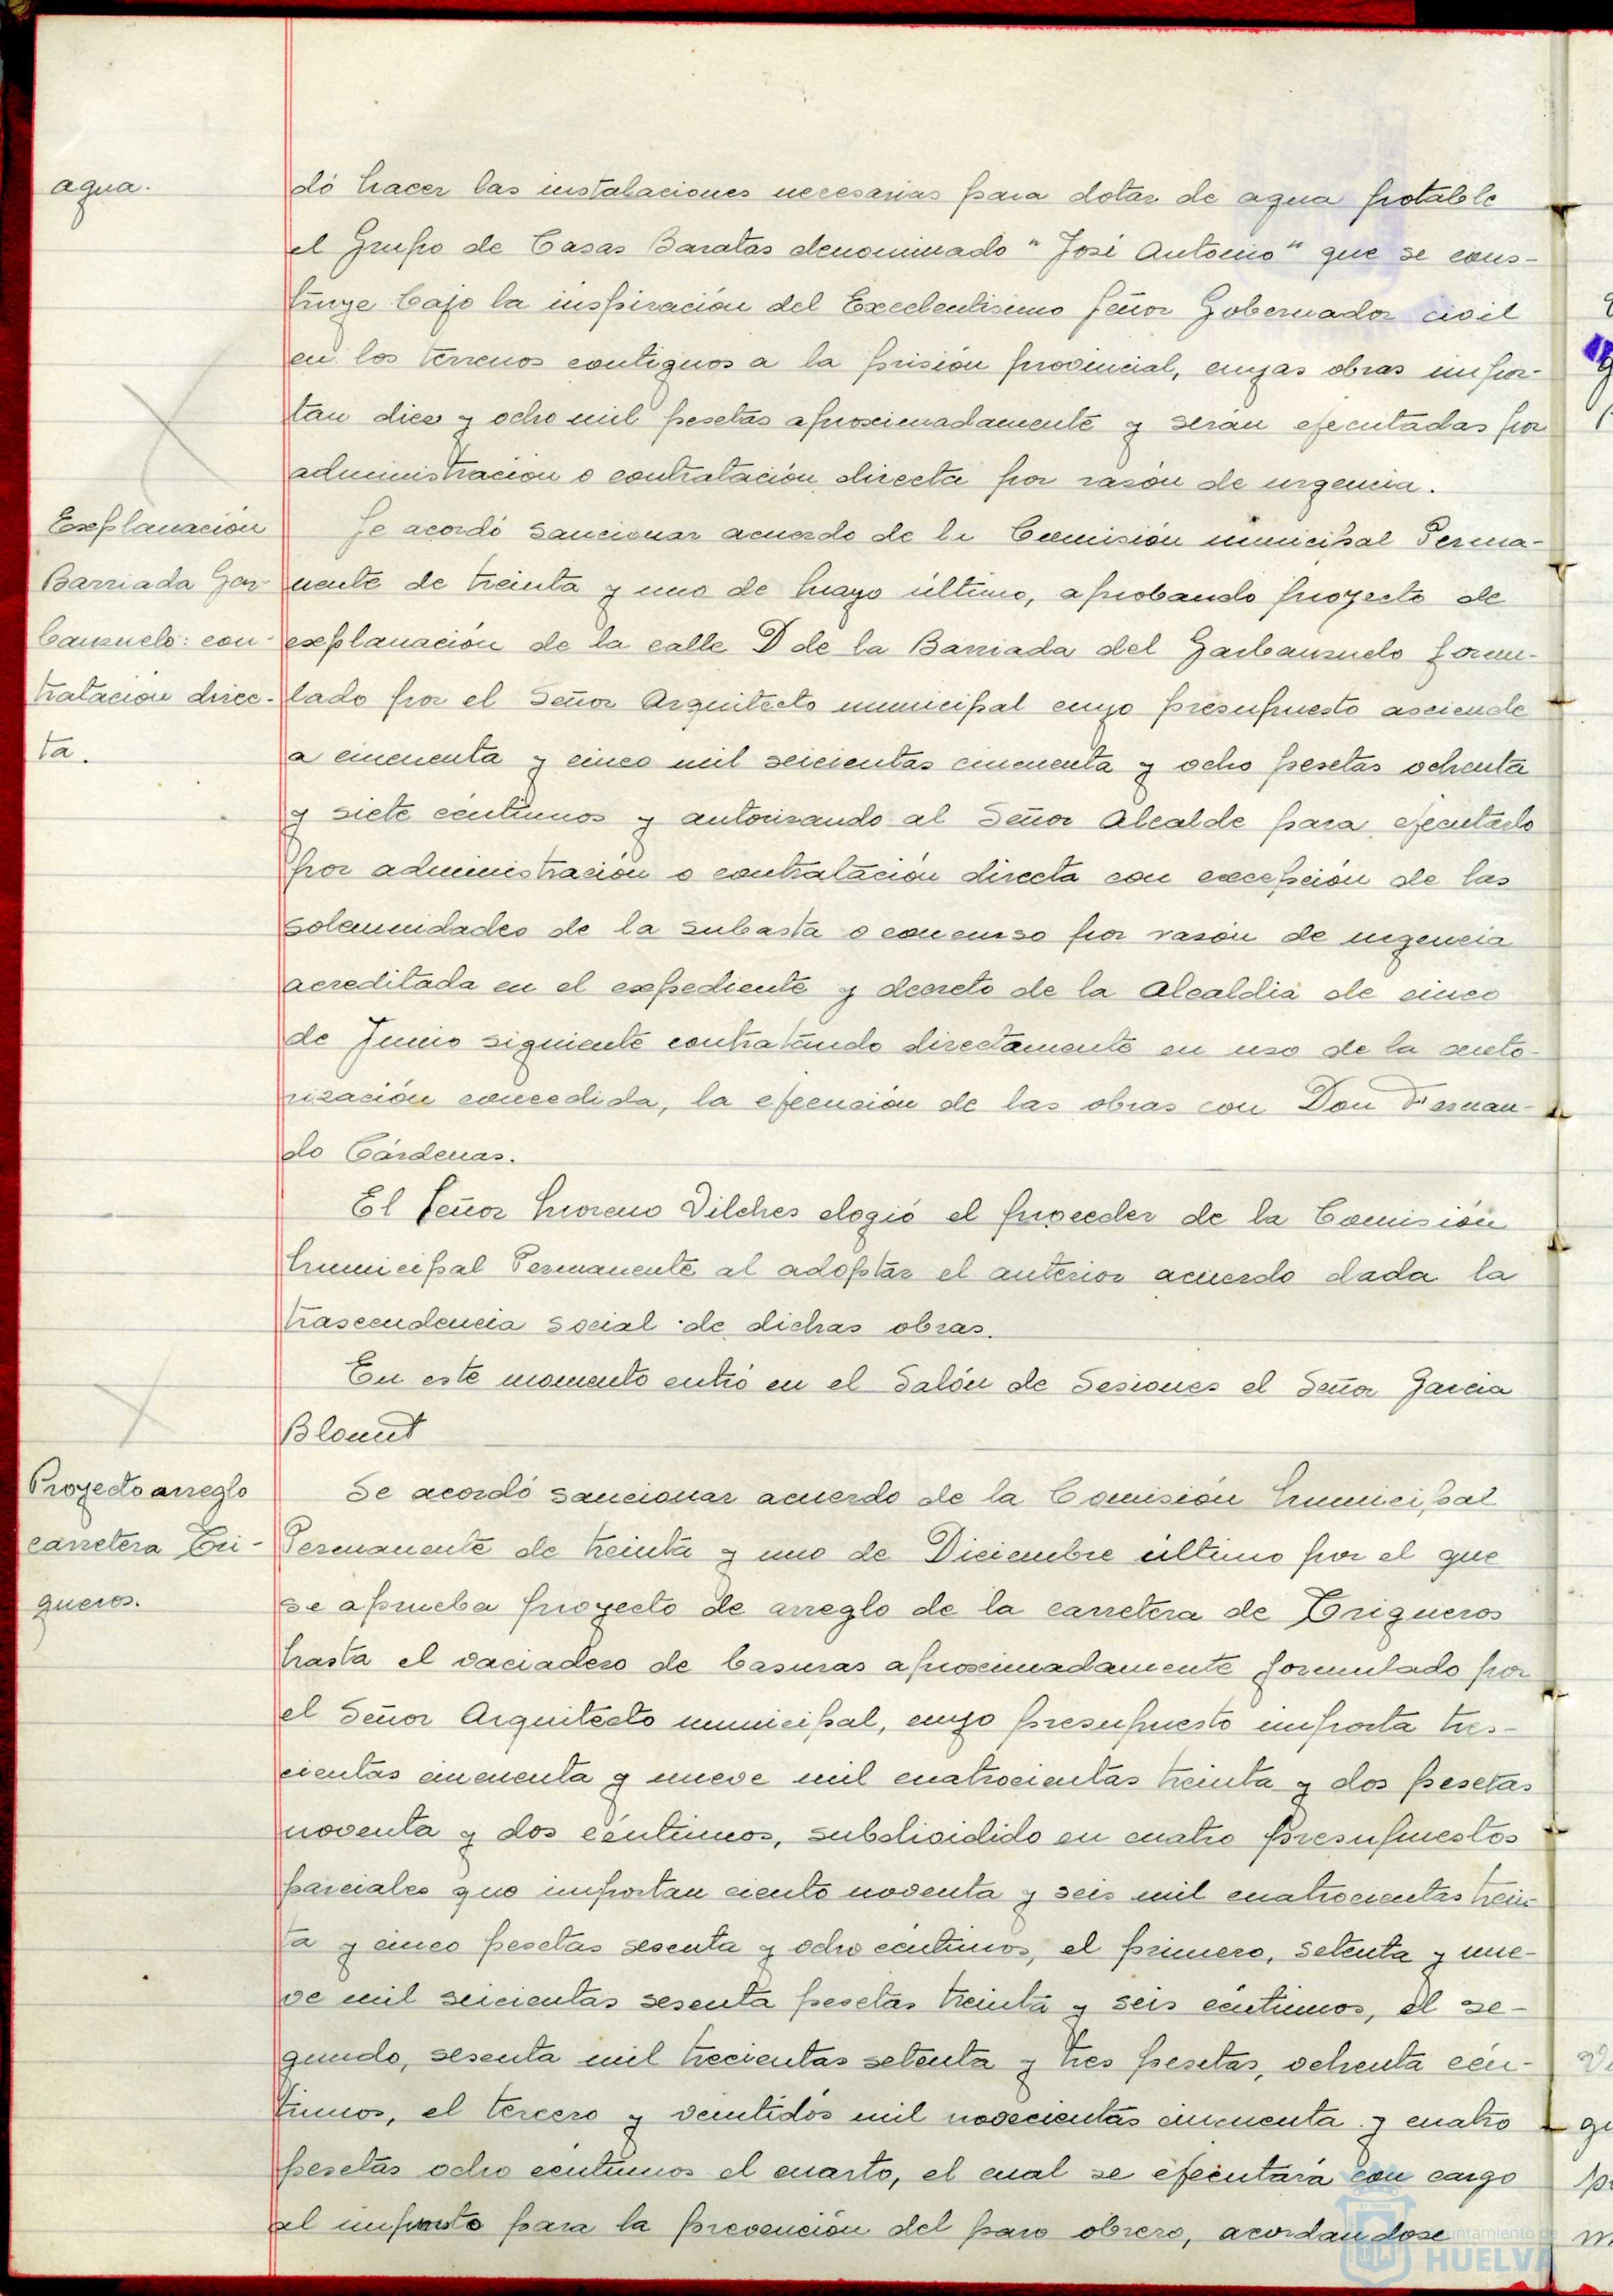 agua.
dó hacer las instalaciones necesarias para dotar de agua potable
el Grupo de Casas Baratas denominado "José Antonio" que se cons-
truye bajo la inspiración del Excelentisimo Señor Gobernador civil
en los terrenos contiguos a la prisión provincial, cuyas obras impor-
tan diez y ocho mil pesetas aproximadamente y serán ejecutadas por
administración o contratación directa por razón de urgencia.
Explanación
Barriada Gar-
banzuelo: con-
tratación direc-
ta.
Se acordó sancionar acuerdo de la Comisión municipal Perma-
nente de treinta y uno de Mayo último, aprobando proyecto de
explanación de la calle D de la Barriada del Garbanzuelo formu-
lado por el Señor Arquitecto municipal cuyo presupuesto asciende
a cincuenta y cinco mil seicientas cincuenta y ocho pesetas ochenta
y siete céntimos y autorizando al Señor Alcalde para ejecutarlo
por administración o contratación directa con excepción de las
solemnidades de la subasta o concurso por razón de urgencia
acreditada en el expediente y decreto de la Alcaldia de cinco
de Junio siguiente contratando directamente en uso de la auto-
rización concedida, la ejecución de las obras con Don Fernan-
do Cárdenas.
El Señor Moreno Vilches elogió el proceder de la Comisión
Municipal Permanente al adoptar el anterior acuerdo dada la
trascendencia social de dichas obras.
En este momento entró en el Salón de Sesiones el Señor Garcia
Blount
Proyecto arreglo
carretera Tri-
gueros.
Se acordó sancionar acuerdo de la Comisión Municipal
Permanente de treinta y uno de Diciembre último por el que
se aprueba proyecto de arreglo de la carretera de Trigueros
hasta el vaciadero de basuras aproximadamente formulado por
el Señor Arquitecto municipal, cuyo presupuesto importa tres-
cientas cincuenta y nueve mil cuatrocientas treinta y dos pesetas
noventa y dos céntimos, subdividido en cuatro presupuestos
parciales que importan ciento noventa y seis mil cuatrocientas trein-
ta y cinco pesetas sesenta y ocho céntimos, el primero, setenta y nue-
ve mil seicientas sesenta pesetas treinta y seis céntimos, el se-
gundo, sesenta mil trecientas setenta y tres pesetas, ochenta cén-
timos, el tercero y veintidós mil novecientas cincuenta y cuatro
pesetas ocho céntimos el cuarto, el cual se ejecutará con cargo
al impuesto para la prevención del paro obrero, acordandose
Ayuntamiento de
HUELVA